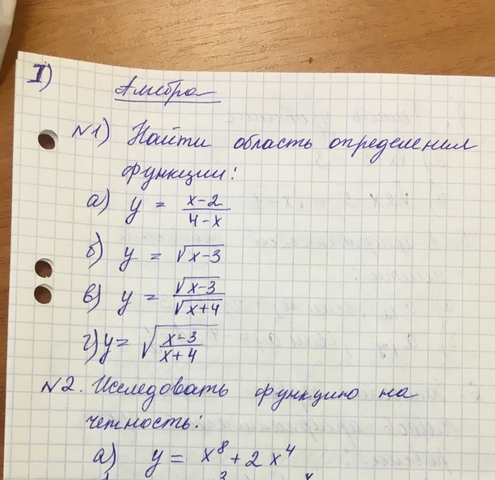 I)
Алгебра
№1) Найти область определения
функции:
а) y = \frac{x-2}{4-x}
б) y = \sqrt{x-3}
в) y = \frac{\sqrt{x-3}}{\sqrt{x+4}}
г) y = \sqrt{\frac{x-3}{x+4}}
№2. Исследовать функцию на
четность:
а) y = x⁸ + 2x⁴